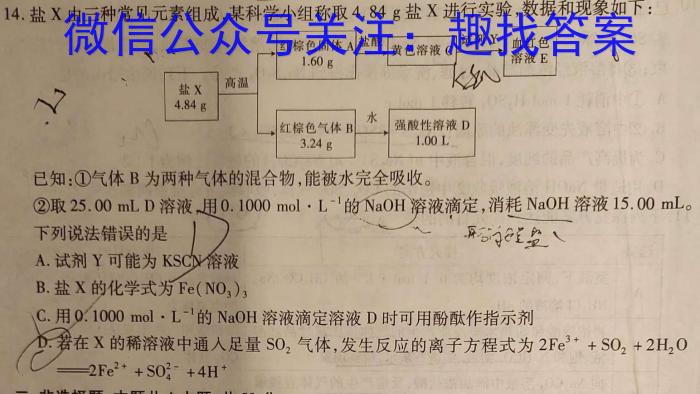 14. 盐 X 由三种常见元素组成,某科学小组称取 4.84 g 盐 X 进行实验,数据和现象如下:
微信公众号关注:趣找答案
红棕色固体 A
1.60 g
盐酸
黄色溶液 C
血红色
溶液 E
KSCN
盐 X
4.84 g
高温
红棕色气体 B
3.24 g
水
强酸性溶液 D
1.00 L
已知:①气体 B 为两种气体的混合物,能被水完全吸收。
②取 25.00 mL D 溶液,用 0.1000 mol·L⁻¹的 NaOH 溶液滴定,消耗 NaOH 溶液 15.00 mL。
下列说法错误的是
A. 试剂 Y 可能为 KSCN 溶液
B. 盐 X 的化学式为 Fe(NO₃)₃
C. 用 0.1000 mol·L⁻¹的 NaOH 溶液滴定溶液 D 时可用酚酞作指示剂
D. 若在 X 的稀溶液中通入足量 SO₂ 气体,发生反应的离子方程式为 2Fe³⁺ + SO₂ + 2H₂O
══2Fe²⁺ + SO₄²⁻ + 4H⁺